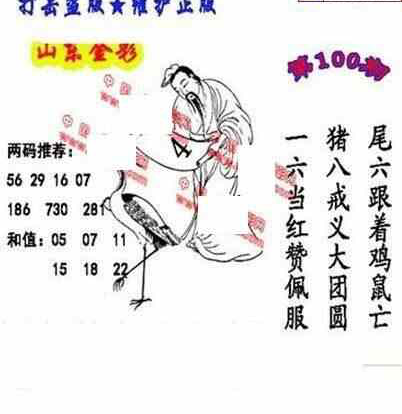 打击盗版★维护正版
山东金彩
第100期
两码推荐:
56 29 16 07
186 730 281
和值: 05 07 11
15 18 22
4
尾六跟着鸡鼠亡
猪八戒义大团圆
一六当红赞佩服